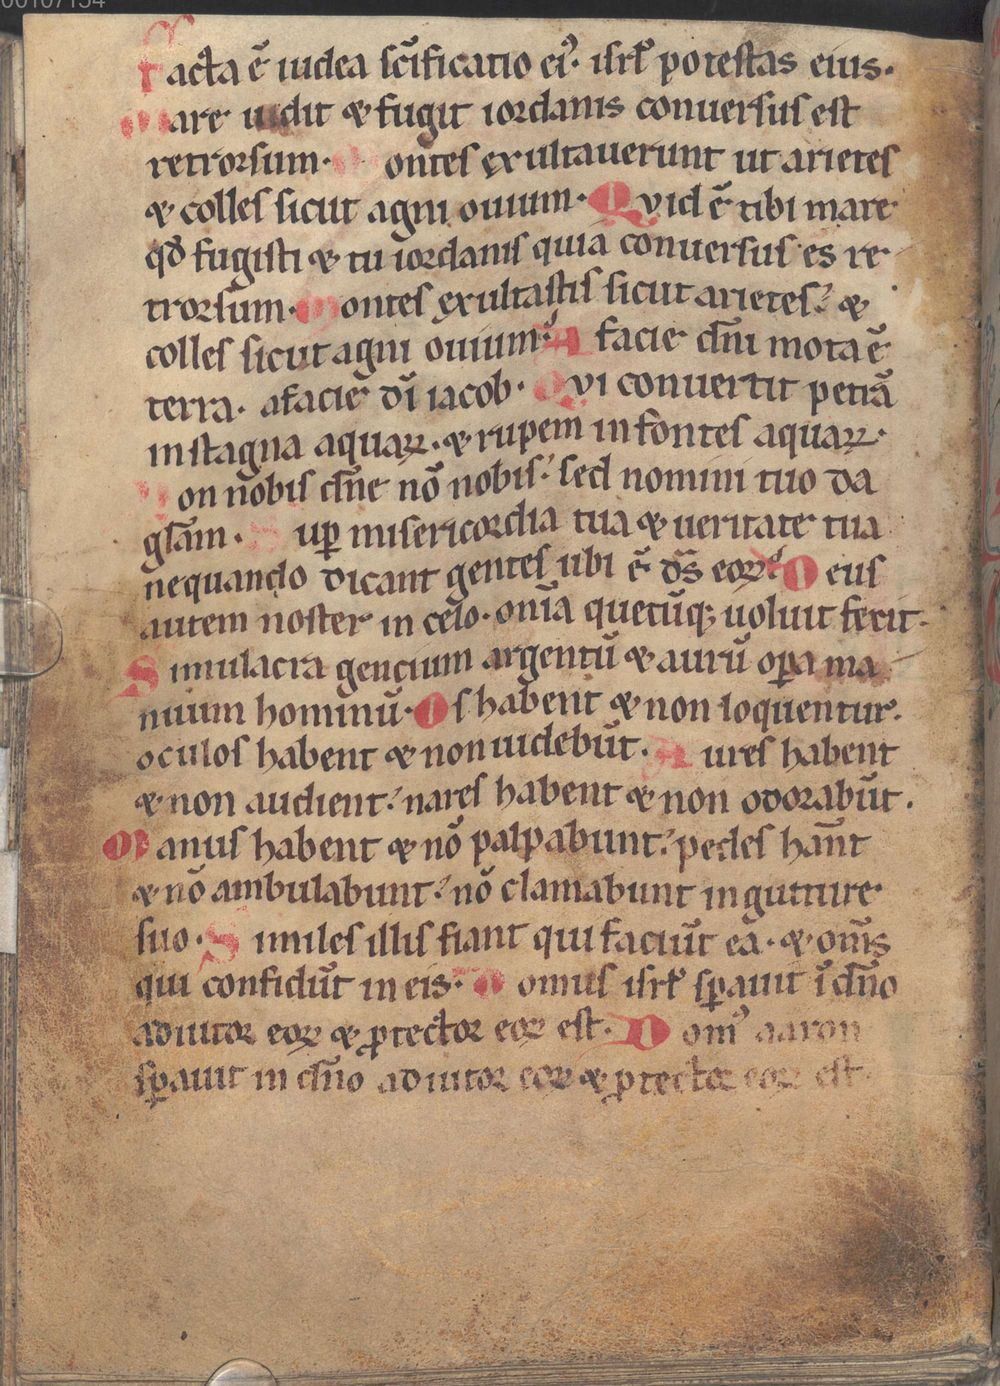 00107154
Facta ē iudea sc̄ificatio ei᾿. isrł potestas eius.
Mare uidit & fugit iordanis conuersus est
retrorsum. Montes exultauerunt ut arietes
& colles sicut agni ouium. Qvid ē tibi mare
qđ fugisti & tu iordanis quia conuersus es re
trorsum. Montes exultastis sicut arietes? &
colles sicut agni ouium? A facie dn̄i mota ē
terra. a facie dī iacob. Qvi conuertit petrā
in stagna aquaꝝ. & rupem in fontes aquaꝝ.
Non nobis dn̄e nō nobis. sed nomini tuo da
gl̄am. Suꝑ misericordia tua & ueritate tua
nequando dicant gentes ubi ē dš eoꝝ? Deus
autem noster in celo. om̄ia quecūq; uoluit fecit.
Simulacra gencium argentū & aurū oꝑa ma
nuum hominū. Os habent & non loquentur.
oculos habent & non uidebūt. Aures habent
& non audient? nares habent & non odorabūt.
Manus habent & nō palpabunt? pedes hn̄t
& nō ambulabunt? nō clamabunt in gutture
suo. Similes illis fiant qui faciūt ea. & om̄s
qui confidūt in eis. Domus isrł sꝑauit ī dn̄o
adiutor eoꝝ & ꝓtector eoꝝ est. Dom᾿ aaron
sꝑauit in dn̄o adiutor eoꝝ & ꝓtector eoꝝ est.